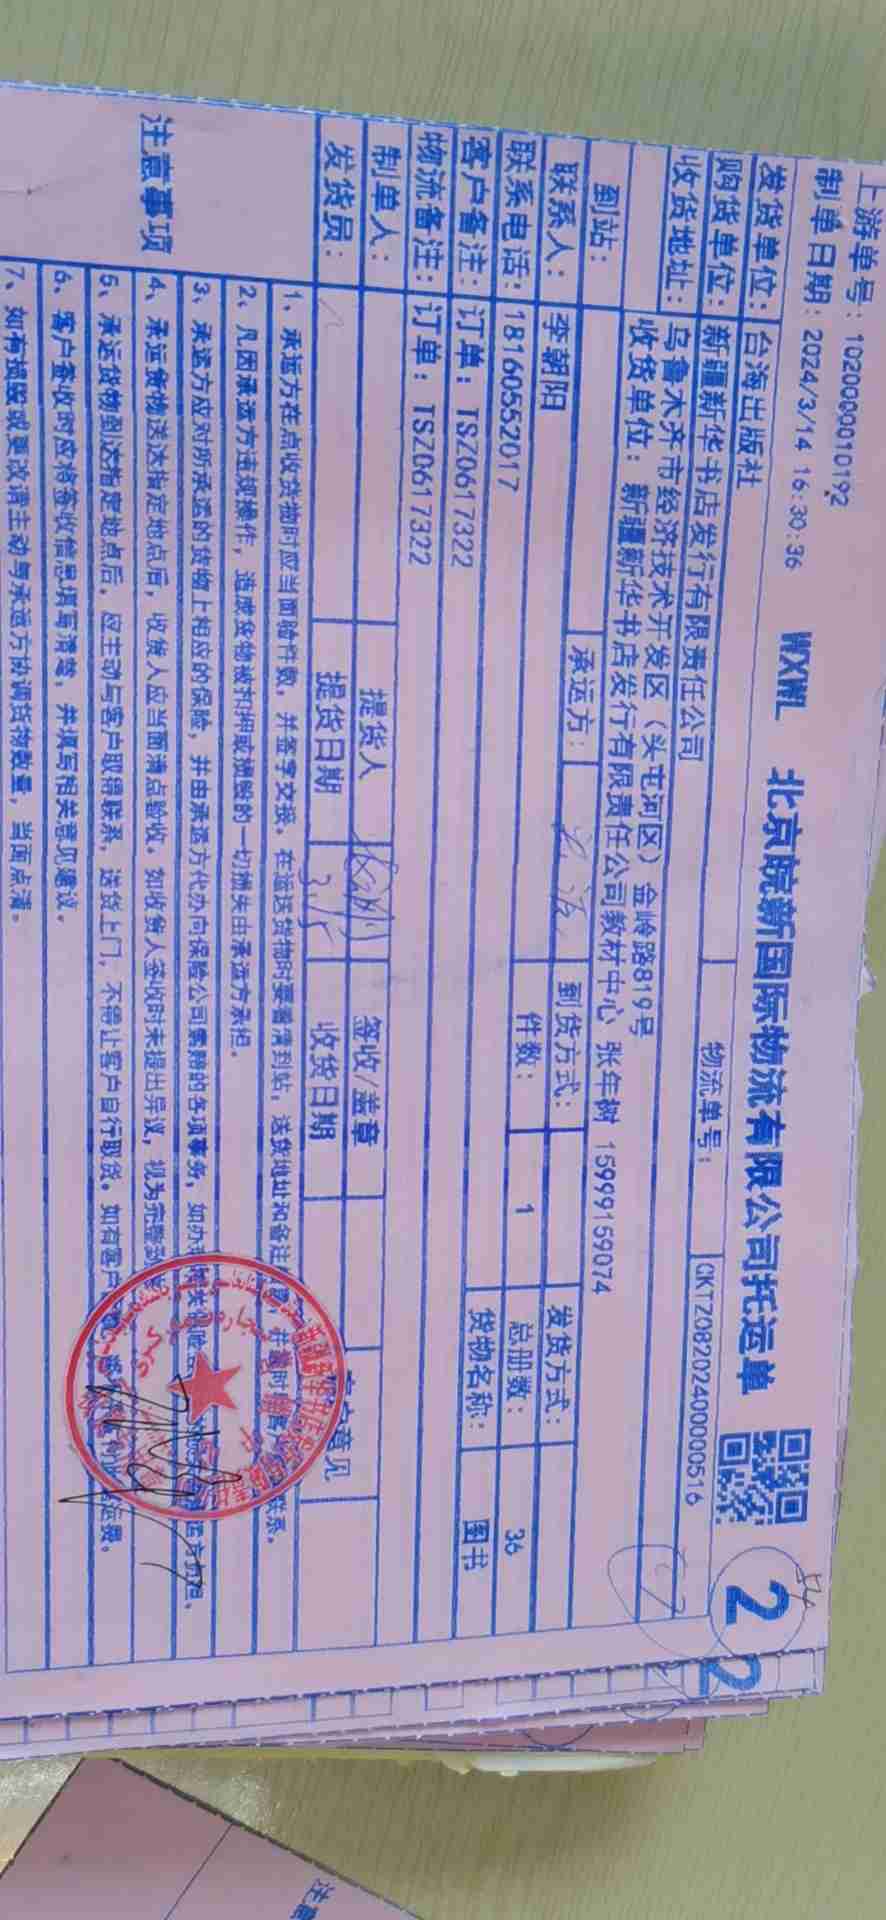 上游单号：1020000010192
WXWL 北京皖新国际物流有限公司托运单
2
制单日期：2024/3/14 16:30:36
物流单号：CKTZ0820240000516
发货单位：台海出版社
购货单位：新疆新华书店发行有限责任公司
收货地址：乌鲁木齐市经济技术开发区（头屯河区）金岭路819号
收货单位：新疆新华书店发行有限责任公司教材中心 张年树 15999159074
到站： 承运方： 到货方式： 发货方式：
联系人：李朝阳 件数：1 总册数：36
联系电话：18160552017 货物名称：图书
客户备注：订单：TSZ0617322
物流备注：订单：TSZ0617322
制单人： 提货人 签收/盖章 意见
发货员： 提货日期 3/15 收货日期
注意事项
1、承运方在点收货物时应当面验件数，并签字交接。在运送货物时要看清到站，送货地址和备注
2、凡因承运方违规操作，造成货物被扣押或损毁的一切损失由承运方承担。
3、承运方应对所承运的货物上相应的保险，并由承运方代办向保险公司索赔的各项事务，如办
4、承运货物送达指定地点后，收货人应当面清点验收。如收货人签收时未提出异议，视为完整到
5、承运货物到达指定地点后，应主动与客户取得联系，送货上门，不得让客户自行取货。如有客户
6、客户签收时应将签收信息填写清楚，并填写相关意见建议。
7、如有损毁或更改请主动与承运方协调货物数量，当面点清。
2
注意